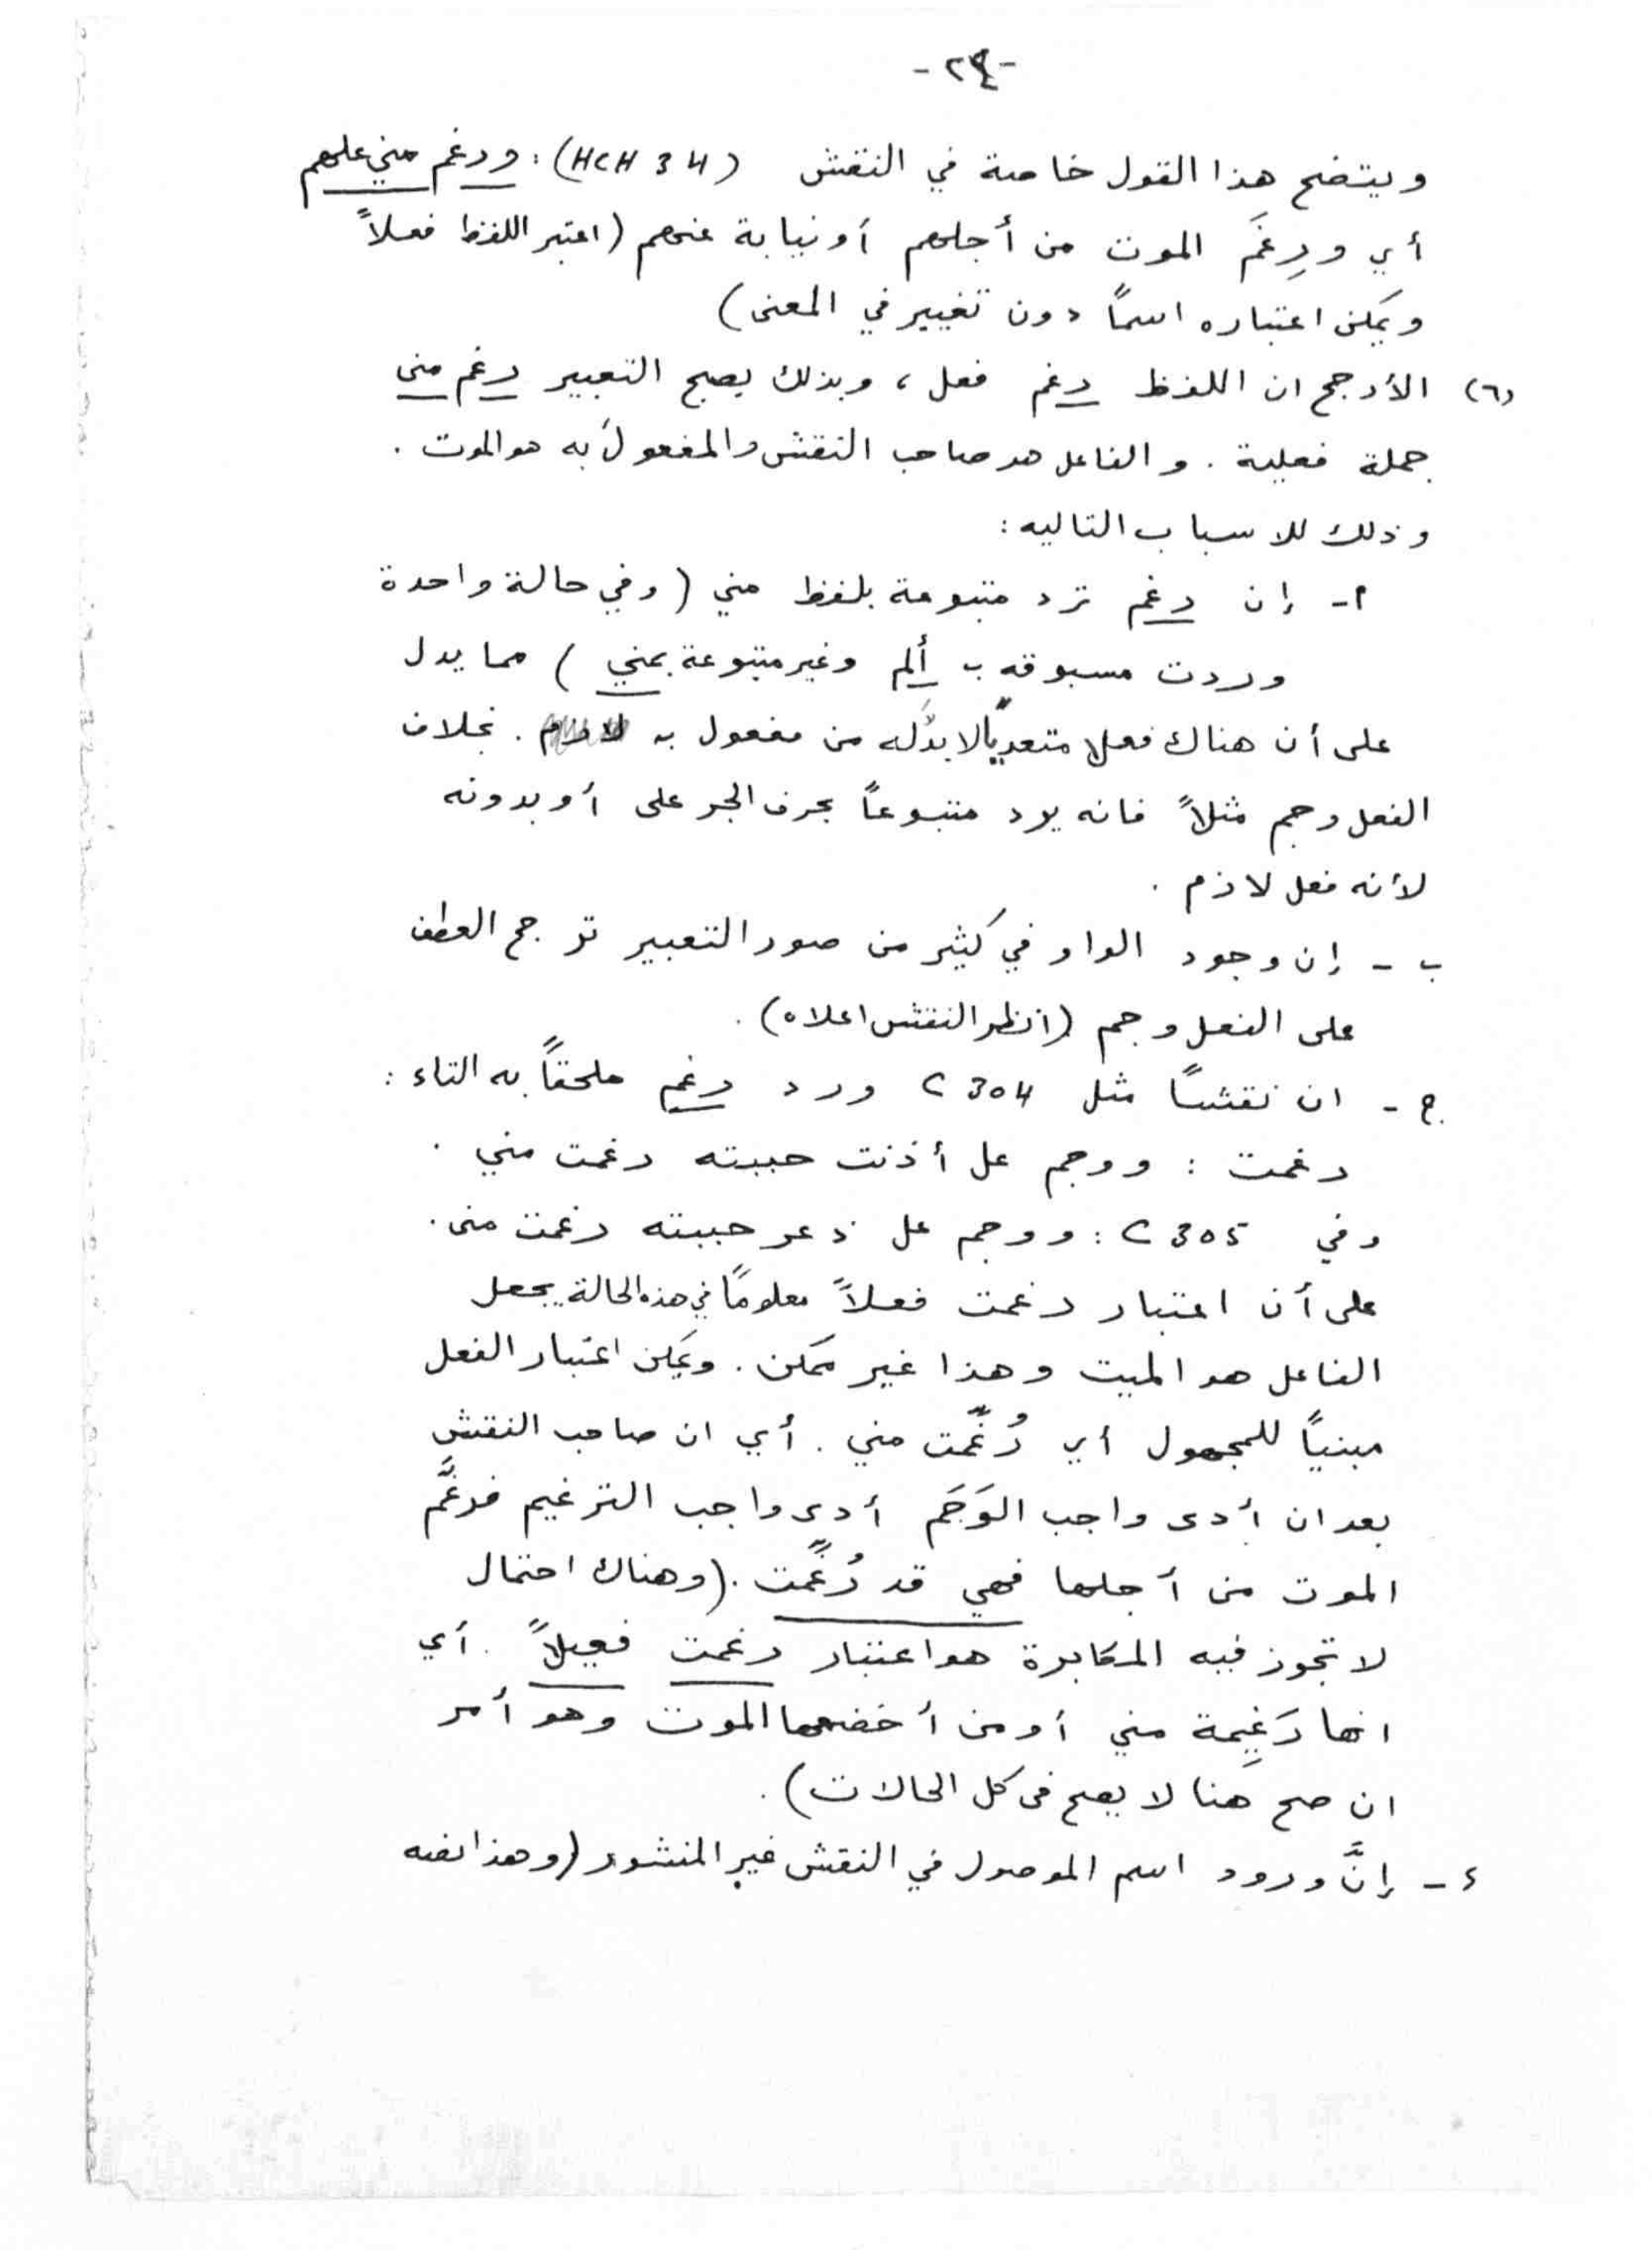 -٢٤-
ويتضح هذا القول خاصة في النقش (HCH 34): ورغم مني علهم
أي ورِغَمَ الموت من أجلهم أو نيابة عنهم (اعتبر اللفظ فعلاً
ويمكن اعتباره اسماً دون تغيير في المعنى)
(٦) الأرجح ان اللفظ رغم فعل، وبذلك يصبح التعبير رغم منى
جملة فعلية. والفاعل هو صاحب النقش والمفعول به هو الموت.
وذلك للاسباب التاليه:
أ- إن رغم ترد متبوعة بلفظ مني (وفي حالة واحدة
وردت مسبوقه ب ألم وغير متبوعة بمني) مما يدل
على أن هناك فعلا متعدياً لا بدَّ له من مفعول به. بخلاف
الفعل وجم مثلاً فانه يرد متبوعاً بحرف الجر على أو بدونه
لأنه فعل لازم.
ب - إن وجود الواو في كثير من صور التعبير ترجح العطف
على الفعل وجم (انظر النقش اعلاه).
ج - ان نقشاً مثل C 304 ورد رغم ملحقاً به التاء:
رغمت: ووجم عل أذنت حببته رغمت مني.
وفي C 305: ووجم عل ذعر حببته رغمت منى.
على أن اعتبار رغمت فعلاً معلوماً في هذه الحالة يجعل
الفاعل هو الميت وهذا غير ممكن. ويمكن اعتبار الفعل
مبنياً للمجهول أي رُغِّمت مني. أي ان صاحب النقش
بعد ان أدى واجب الوَجَم أدى واجب الترغيم فرغَّم
الموت من أجلها فهي قد رُغِّمت. (وهناك احتمال
لا تجوز فيه المكابرة هو اعتبار رغمت فعيلاً. أي
انها رَغِيمة مني أو من أخضعها الموت وهو أمر
ان صح هنا لا يصح فى كل الحالات).
د - إنَّ ورود اسم الموصول في النقش غير المنشور (وهذا نصه